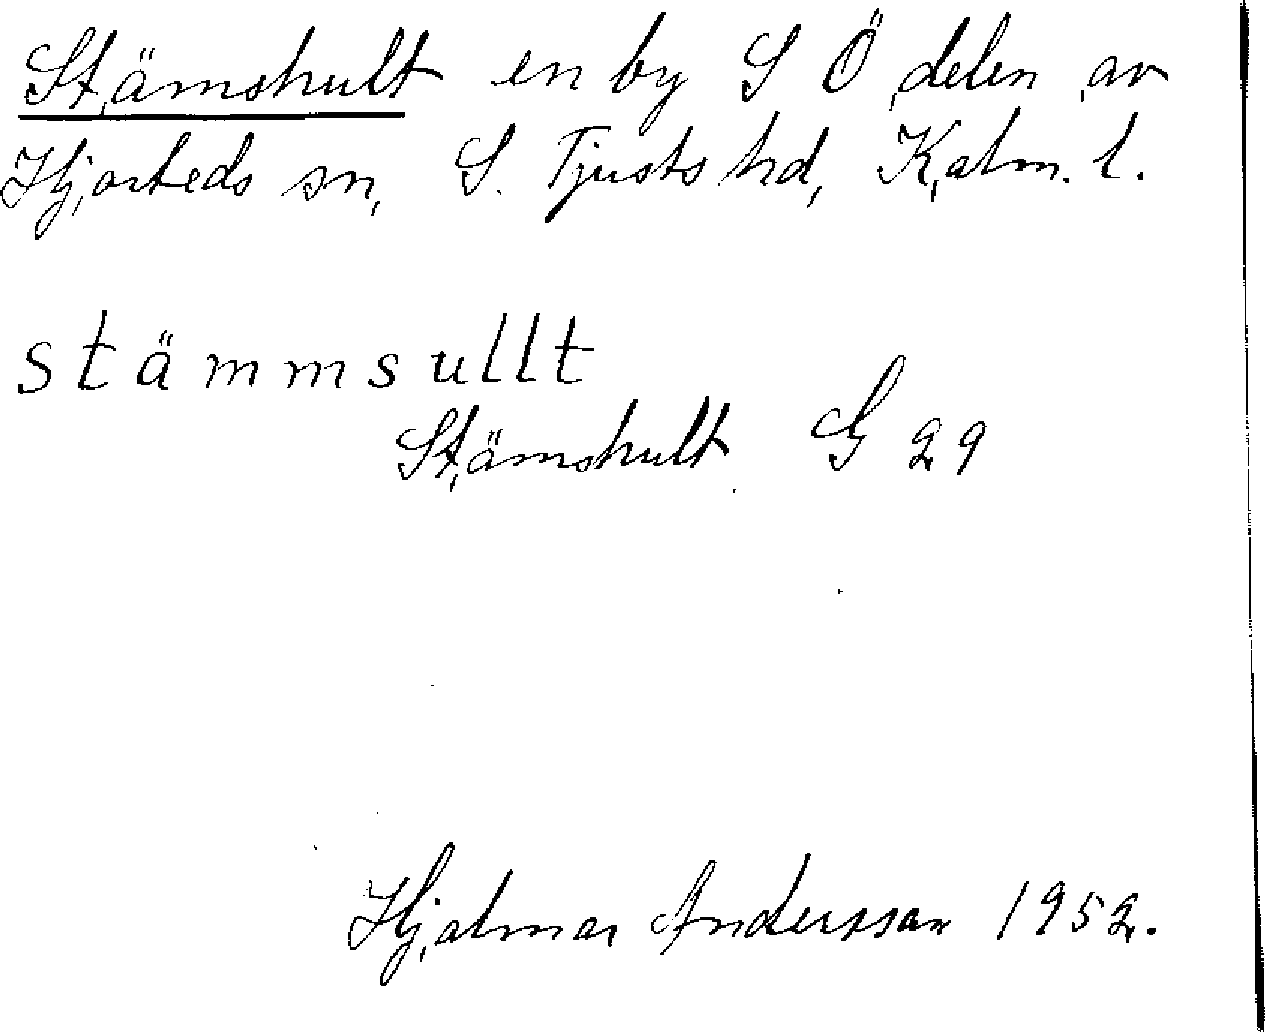 Stämshult en by S Ö delen av
Hjorteds sn, S. Tjusts hd, Kalm. l.
stämmsullt
Stämshult G 29
Hjalmar Andersson 1952.